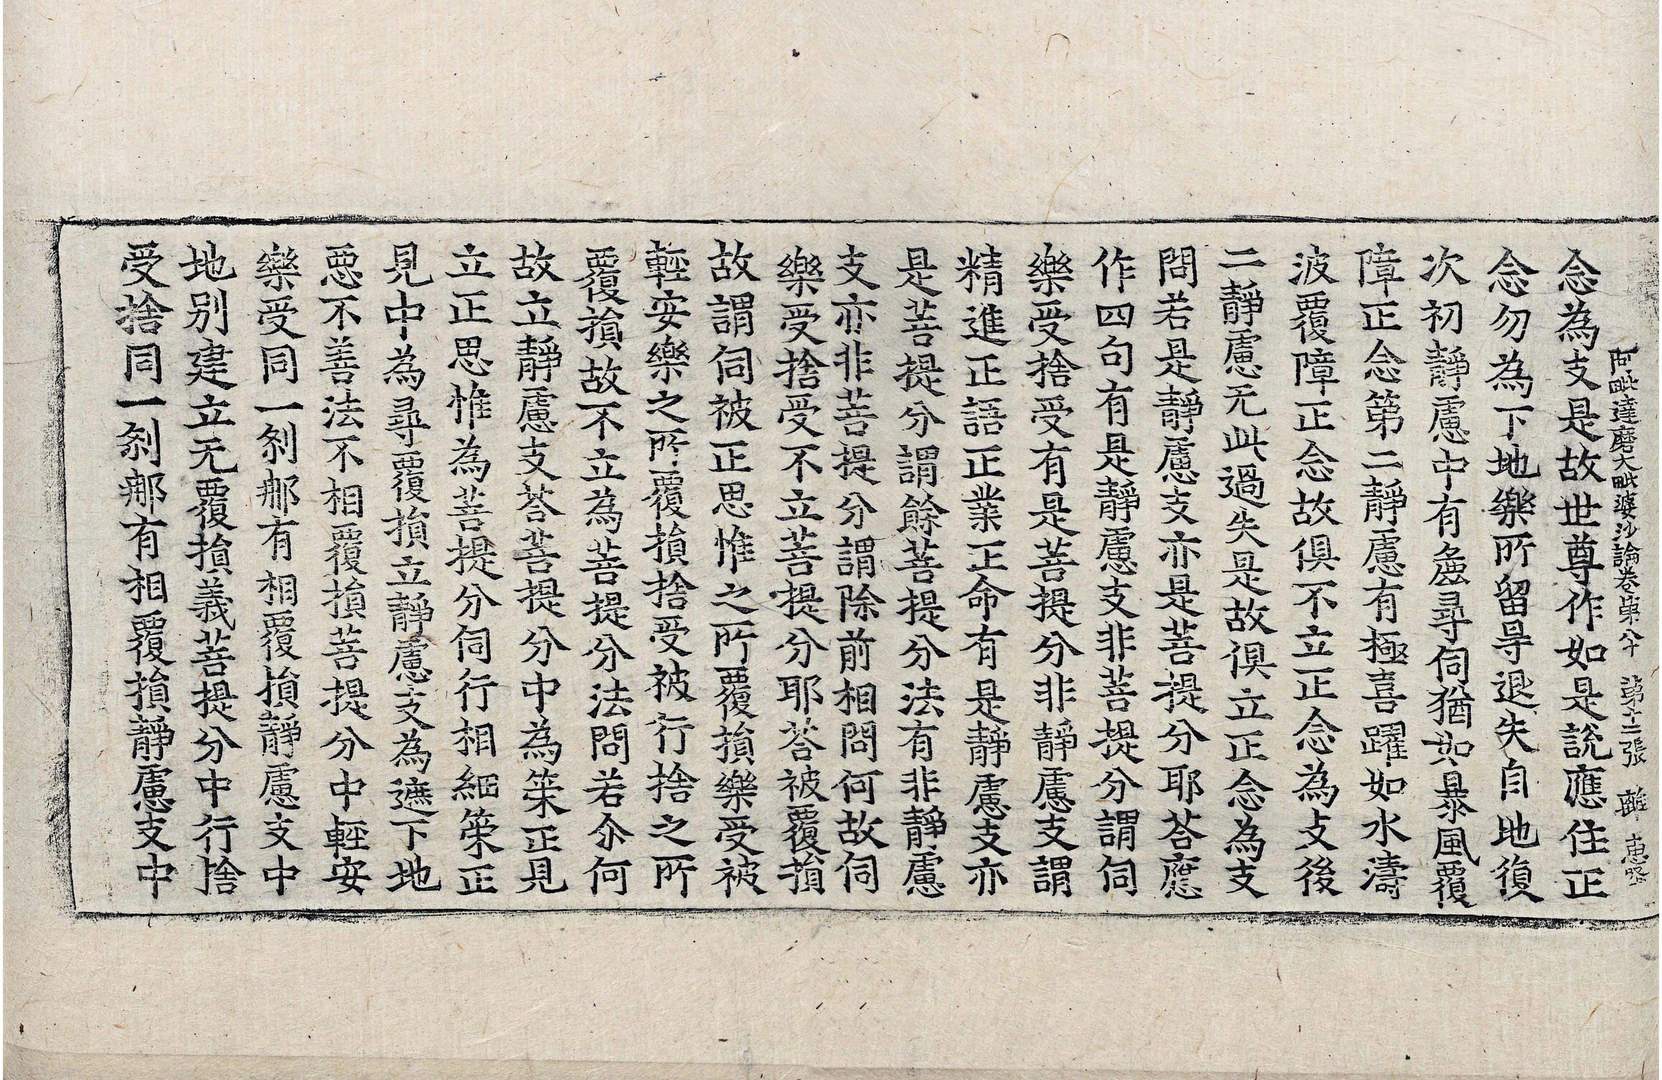 阿毗達磨大毗婆沙論卷第八十　第十二張　離　惠堅
念為支是故世尊作如是說應住正
念勿為下地樂所留㝵退失自地復
次初靜慮中有麁尋伺猶如暴風覆
障正念第二靜慮有極喜躍如水濤
波覆障正念故俱不立正念為支後
二靜慮无此過失是故俱立正念為支
問若是靜慮支亦是菩提分耶荅應
作四句有是靜慮支非菩提分謂伺
樂受捨受有是菩提分非靜慮支謂
精進正語正業正命有是靜慮支亦
是菩提分謂餘菩提分法有非靜慮
支亦非菩提分謂除前相問何故伺
樂受捨受不立菩提分耶荅被覆損
故謂伺被正思惟之所覆損樂受被
輕安樂之所覆損捨受被行捨之所
覆損故不立為菩提分法問若尒何
故立靜慮支荅菩提分中為策正見
立正思惟為菩提分伺行相細策正
見中為尋覆損立靜慮支為遮下地
惡不善法不相覆損菩提分中輕安
樂受同一剎那有相覆損靜慮支中
地別建立无覆損義菩提分中行捨
受捨同一剎那有相覆損靜慮支中